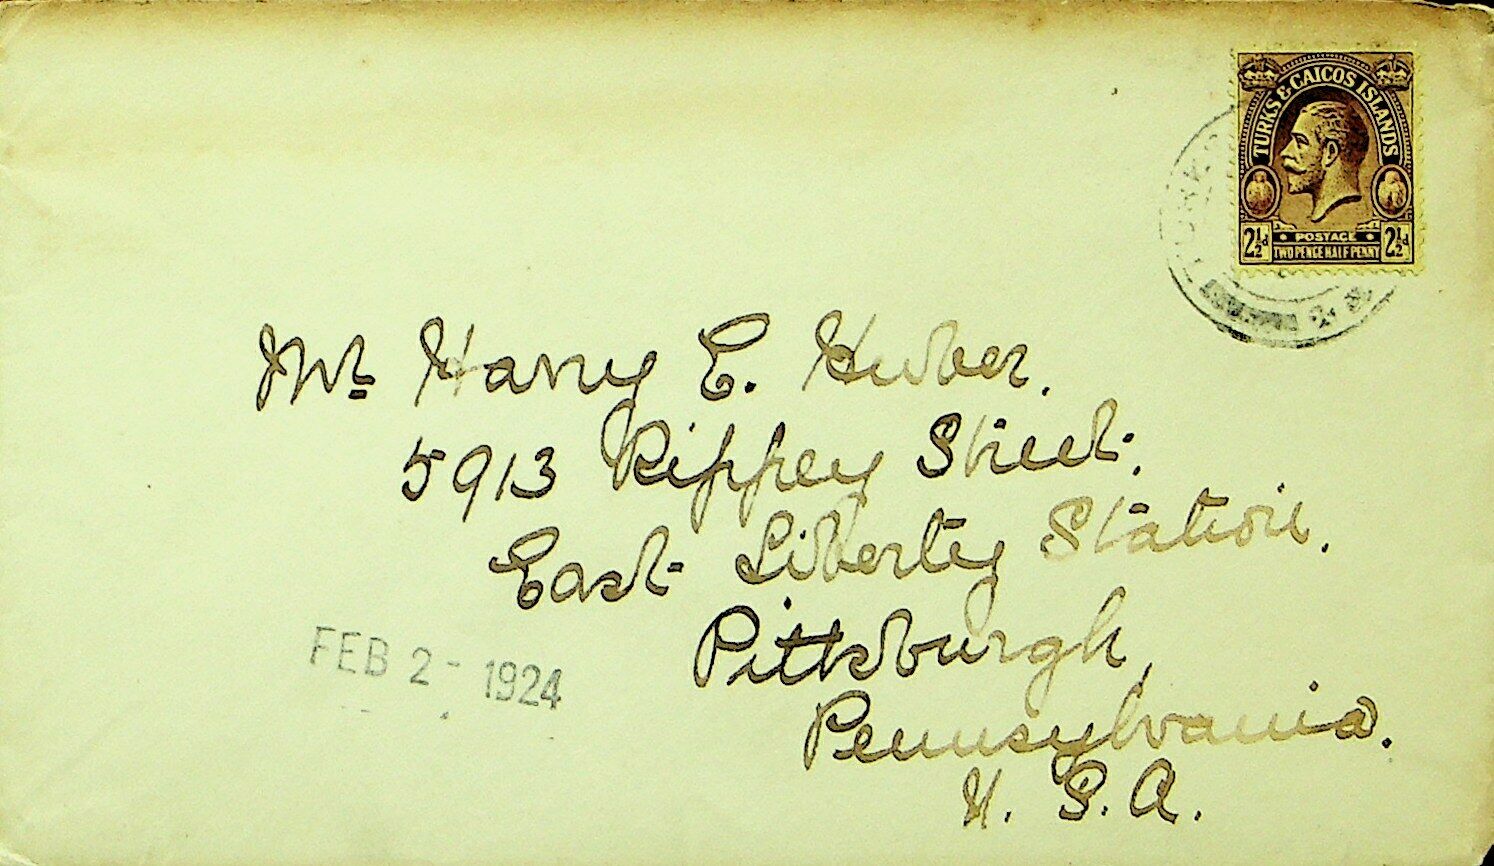 TURKS & CAICOS ISLANDS
2½d POSTAGE 2½d
TWO PENCE HALF PENNY
Mr. Harry E. Huber.
5913 Rippey Street.
East Liberty Station.
Pittsburgh,
Pennsylvania.
U. S. A.
FEB 2 - 1924